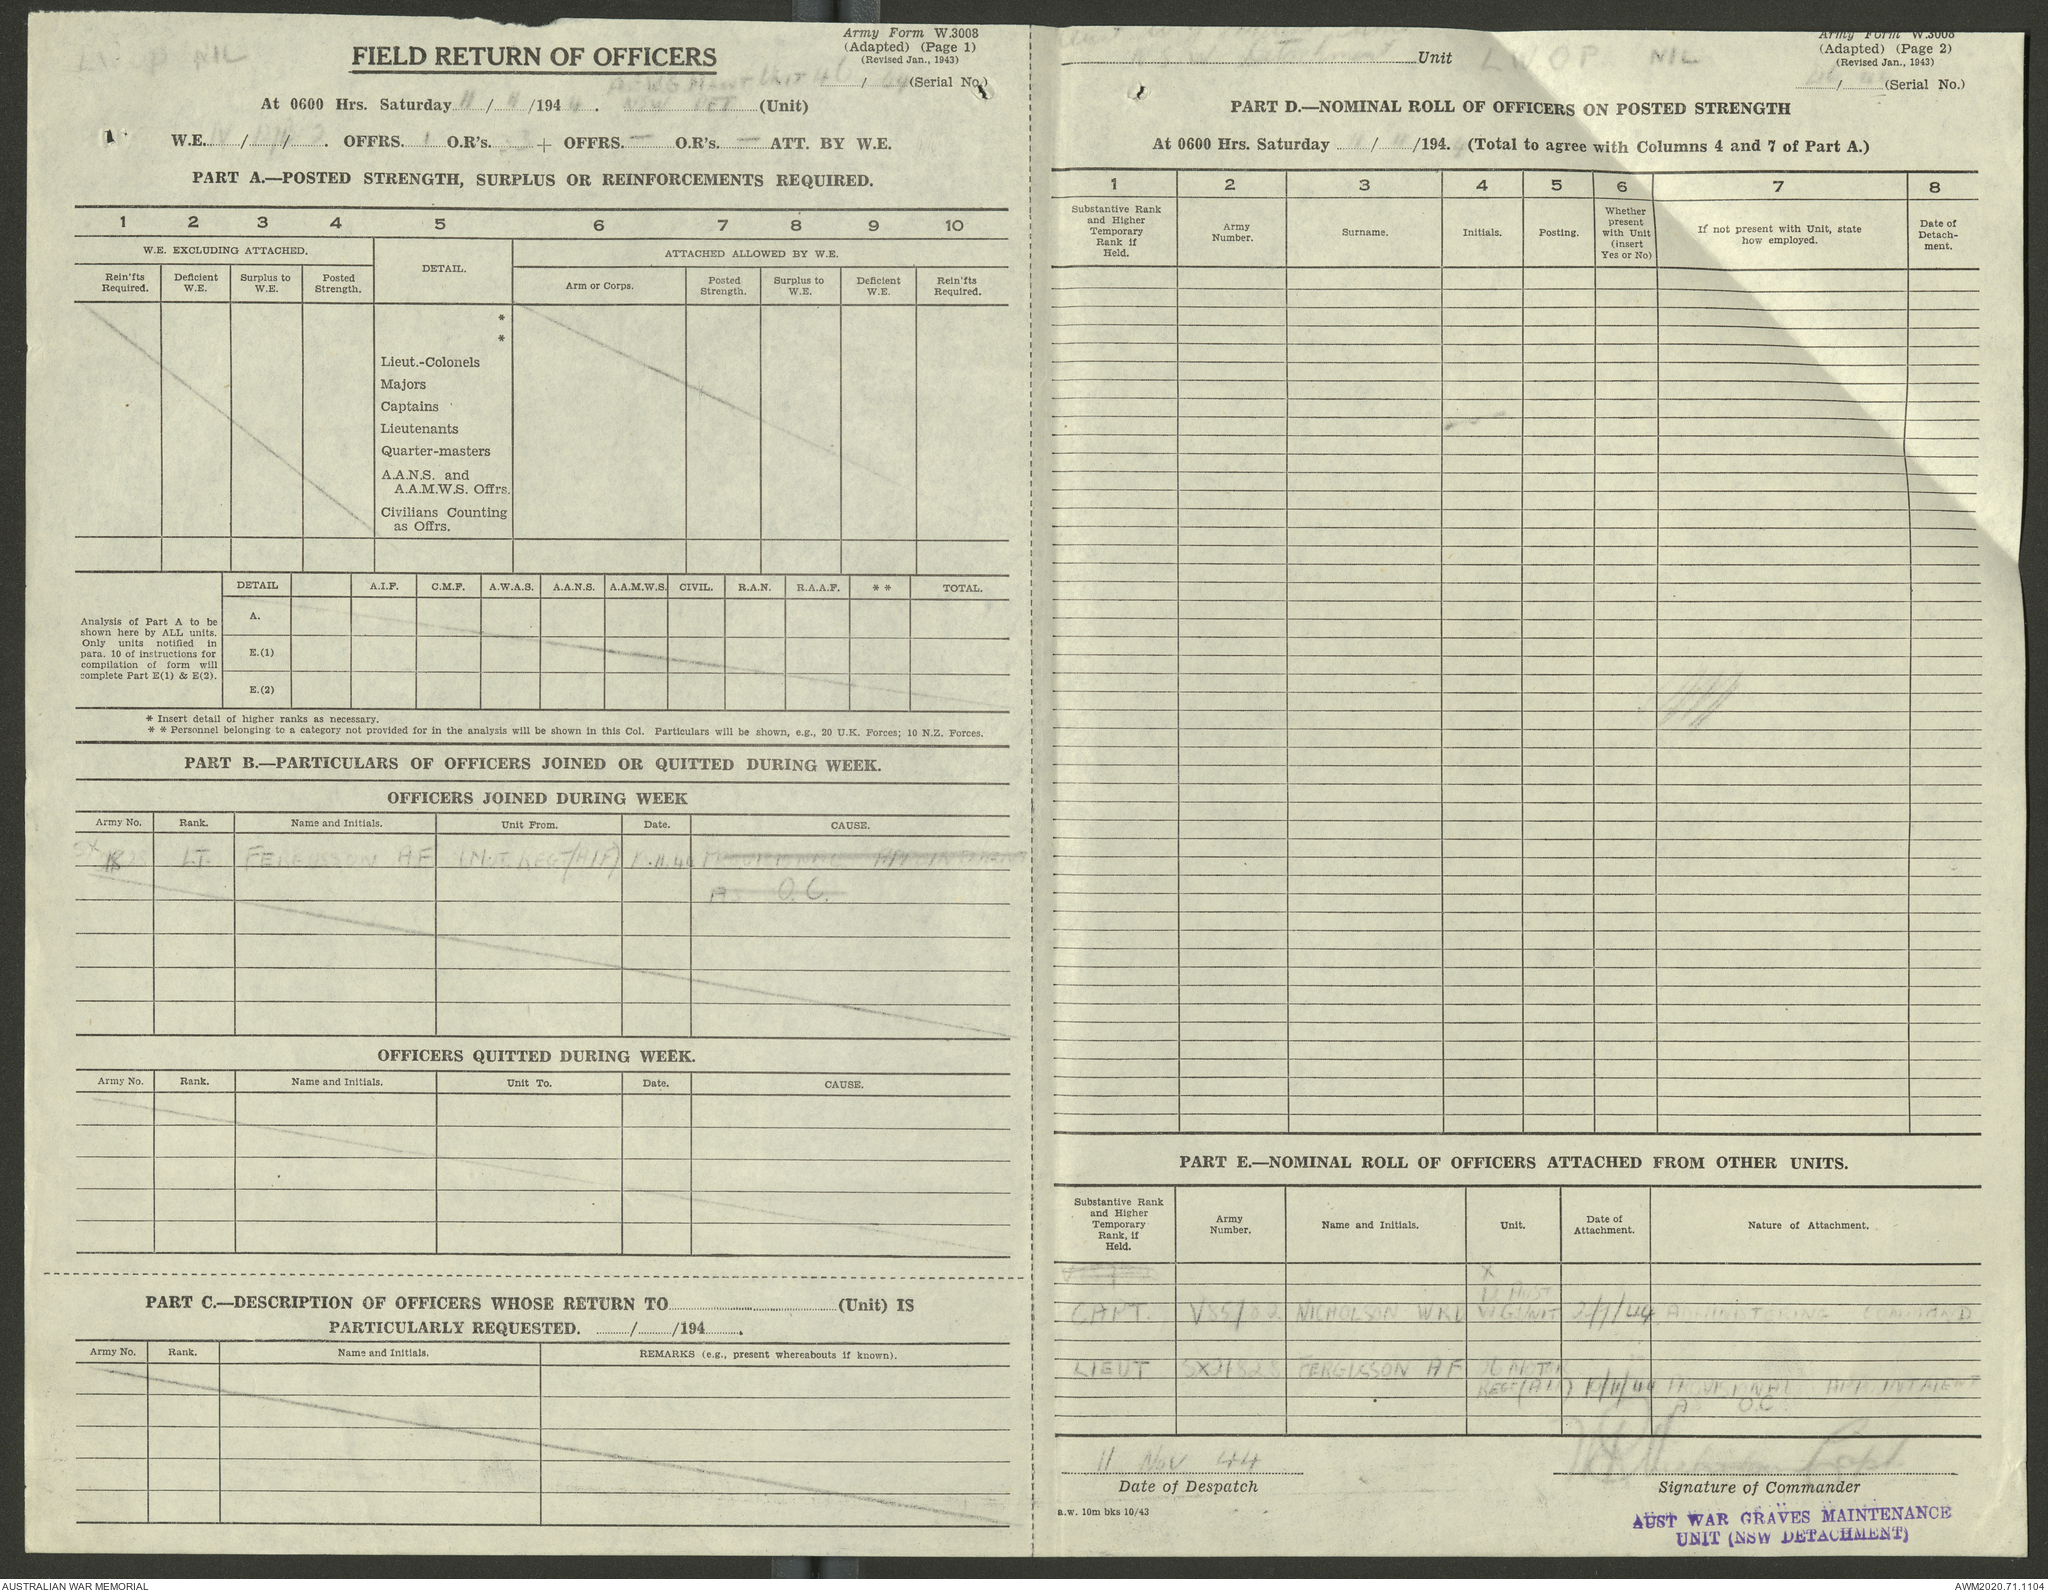 LWOP NIL
Army Form W.3008
(Adapted) (Page 1)
(Revised Jan., 1943)
FIELD RETURN OF OFFICERS
(Serial No.)
At 0600 Hrs. Saturday 11/11/1944. NSW DET (Unit)
W.E. OFFRS. 1 O.R's. 23 + OFFRS. — O.R's. — ATT. BY W.E.
PART A.—POSTED STRENGTH, SURPLUS OR REINFORCEMENTS REQUIRED.
1 2 3 4 5 6 7 8 9 10
W.E. EXCLUDING ATTACHED.
DETAIL.
ATTACHED ALLOWED BY W.E.
Rein'fts Required.
Deficient W.E.
Surplus to W.E.
Posted Strength.
Arm or Corps.
Posted Strength.
Surplus to W.E.
Deficient W.E.
Rein'fts Required.
*
*
Lieut.-Colonels
Majors
Captains
Lieutenants
Quarter-masters
A.A.N.S. and
A.A.M.W.S. Offrs.
Civilians Counting
as Offrs.
DETAIL A.I.F. C.M.F. A.W.A.S. A.A.N.S. A.A.M.W.S. CIVIL. R.A.N. R.A.A.F. * * TOTAL.
Analysis of Part A to be
shown here by ALL units.
Only units notified in
para. 10 of instructions for
compilation of form will
complete Part E(1) & E(2).
A.
E.(1)
E.(2)
* Insert detail of higher ranks as necessary.
* * Personnel belonging to a category not provided for in the analysis will be shown in this Col. Particulars will be shown, e.g., 20 U.K. Forces; 10 N.Z. Forces.
PART B.—PARTICULARS OF OFFICERS JOINED OR QUITTED DURING WEEK.
OFFICERS JOINED DURING WEEK
Army No. Rank. Name and Initials. Unit From. Date. CAUSE.
LT. FERGUSSON AF PROVISIONAL APPOINTMENT
AS O.C.
OFFICERS QUITTED DURING WEEK.
Army No. Rank. Name and Initials. Unit To. Date. CAUSE.
PART C.—DESCRIPTION OF OFFICERS WHOSE RETURN TO (Unit) IS
PARTICULARLY REQUESTED. / /194 .
Army No. Rank. Name and Initials. REMARKS (e.g., present whereabouts if known).
Army Form W.3008
(Adapted) (Page 2)
(Revised Jan., 1943)
Detachment Unit LWOP NIL
(Serial No.)
PART D.—NOMINAL ROLL OF OFFICERS ON POSTED STRENGTH
At 0600 Hrs. Saturday 11/11/1944. (Total to agree with Columns 4 and 7 of Part A.)
1 2 3 4 5 6 7 8
Substantive Rank
and Higher
Temporary
Rank if
Held.
Army
Number.
Surname.
Initials.
Posting.
Whether
present
with Unit
(insert
Yes or No)
If not present with Unit, state
how employed.
Date of
Detach-
ment.
PART E.—NOMINAL ROLL OF OFFICERS ATTACHED FROM OTHER UNITS.
Substantive Rank
and Higher
Temporary
Rank, if
Held.
Army
Number.
Name and Initials.
Unit.
Date of
Attachment.
Nature of Attachment.
CAPT. NICHOLSON ADMINISTERING COMMAND
LIEUT SX21828 FERGUSSON AF
10/11/44 PROVISIONAL APPOINTMENT
AS O.C
11 Nov 44
Date of Despatch
Signature of Commander
a.w. 10m bks 10/43
AUST WAR GRAVES MAINTENANCE
UNIT (NSW DETACHMENT)
AUSTRALIAN WAR MEMORIAL
AWM2020.71.1104